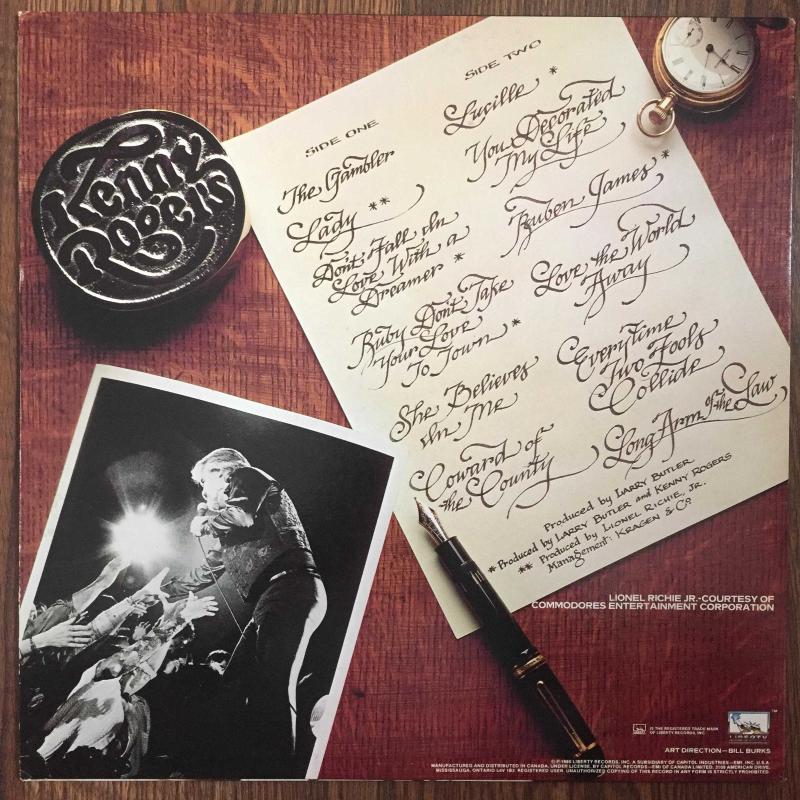 Kenny
Rogers
SIDE ONE
The Gambler
Lady **
Don't Fall In
Love With a
Dreamer *
Ruby Don't Take
Your Love
To Town *
She Believes
In Me
Coward of
the County
SIDE TWO
Lucille *
You Decorated
My Life
Reuben James *
Love the World
Away
Everytime
Two Fools
Collide
Long Arm of the Law
Produced by LARRY BUTLER
* Produced by LARRY BUTLER and KENNY ROGERS
** Produced by LIONEL RICHIE, JR.
Management: KRAGEN & CO.
LIONEL RICHIE JR.-COURTESY OF
COMMODORES ENTERTAINMENT CORPORATION
IS THE REGISTERED TRADE MARK
OF LIBERTY RECORDS, INC.
LIBERTY
TM
ART DIRECTION—BILL BURKS
© ℗ 1980 LIBERTY RECORDS, INC. A SUBSIDIARY OF CAPITOL INDUSTRIES—EMI, INC. U.S.A.
MANUFACTURED AND DISTRIBUTED IN CANADA, UNDER LICENSE, BY CAPITOL RECORDS—EMI OF CANADA LIMITED, 3109 AMERICAN DRIVE,
MISSISSAUGA, ONTARIO L4V 1B2. REGISTERED USER. UNAUTHORIZED COPYING OF THIS RECORD IN ANY FORM IS STRICTLY PROHIBITED.